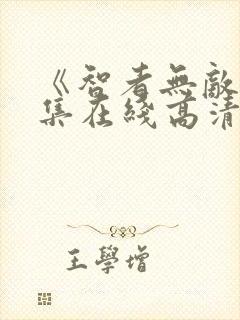 《智者無敵
集在綫高清
王學增